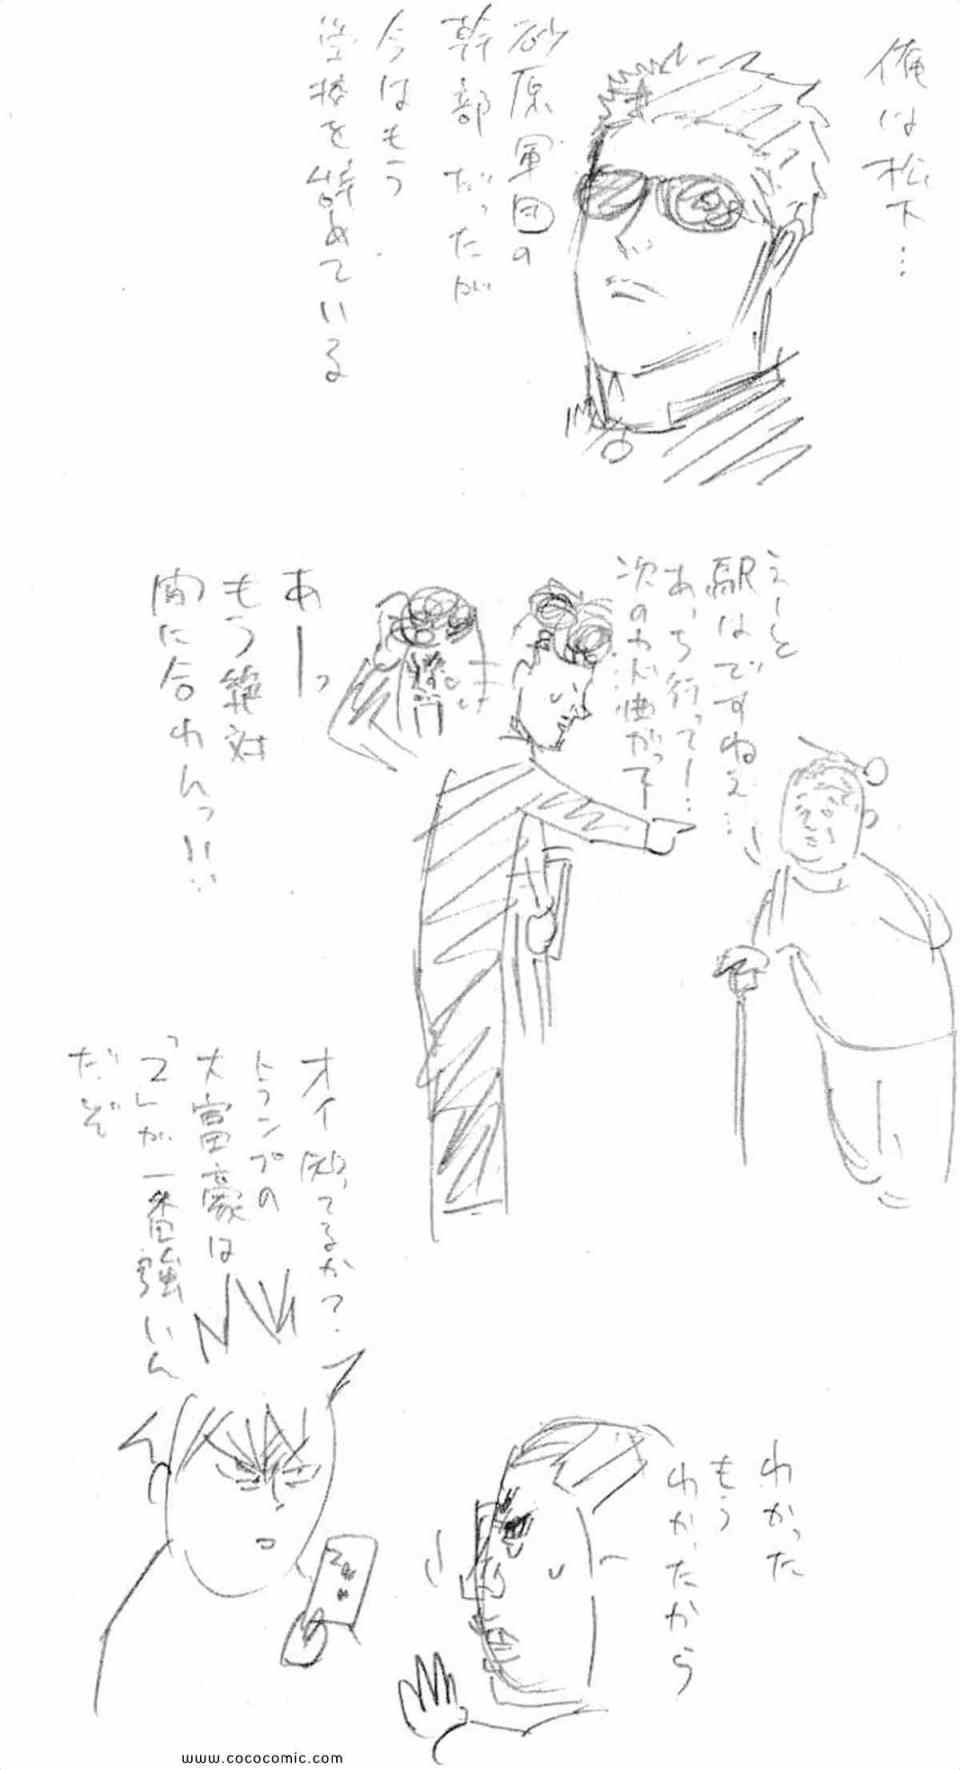 俺は松下…
砂原軍団の
幹部だったが
今はもう
学校を辞めている
えーと
駅はですねぇ…
あっち行ってー…
次のカド曲がってー
あーっ
もう絶対
間に合わんっ!!
オイ知ってるか?
トランプの
大富豪は
「2」が一番強いん
だぞ
わかった
もう
わかったから
www.cococomic.com